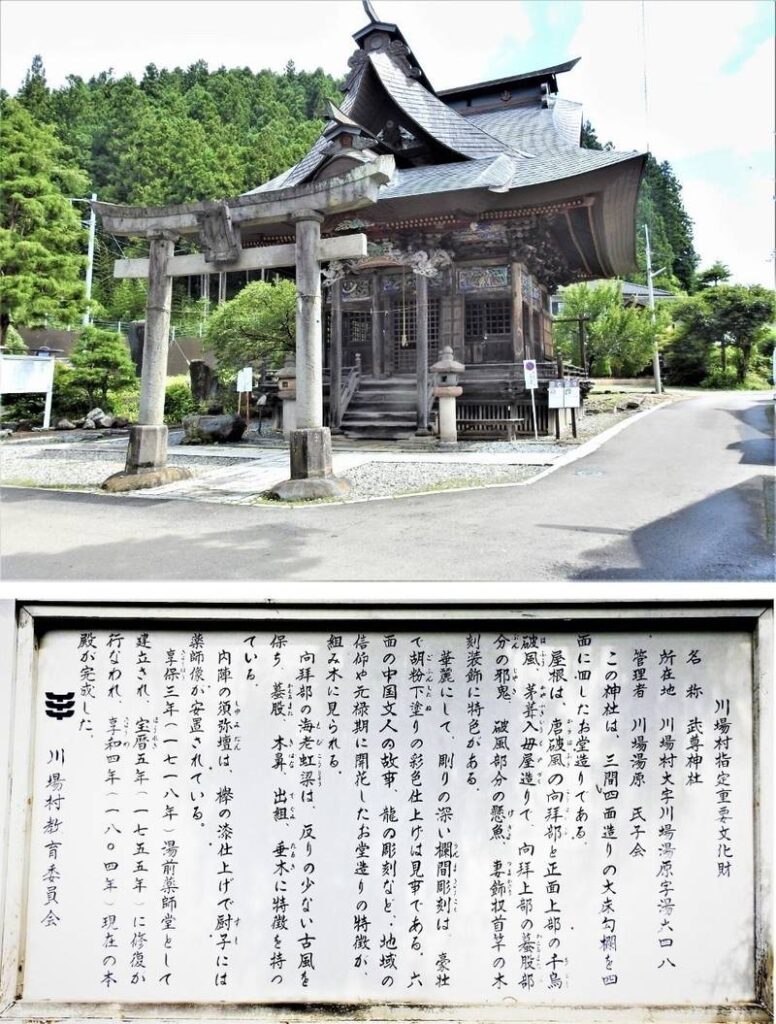 川場村指定重要文化財
名　称　武尊神社
所在地　川場村大字川場湯原字湯六四八
管理者　川場湯原　氏子会
この神社は、三間四面造りの大床勾欄を四
面に回したお堂造りである。
屋根は、唐破風の向拝部と正面上部の千鳥
破風、茅葺入母屋造りで、向拝上部の蟇股部
分の邪鬼、破風部分の懸魚、妻飾扠首竿の木
刻装飾に特色がある。
華麗にして、彫りの深い欄間彫刻は、豪壮
で胡粉下塗りの彩色仕上げは見事である。六
面の中国文人の故事、龍の彫刻など、地域の
信仰や元禄期に開花したお堂造りの特徴が、
組み木に見られる。
向拝部の海老虹梁は、反りの少ない古風を
保ち、蟇股、木鼻、出組、垂木に特徴を持つ
ている。
内陣の須弥壇は、欅の漆仕上げで厨子には
薬師像が安置されている。
享保三年(一七一八年)湯前薬師堂として
建立され、宝暦五年(一七五五年)に修復が
行なわれ、享和四年(一八〇四年)現在の本
殿が完成した。
川場村教育委員会